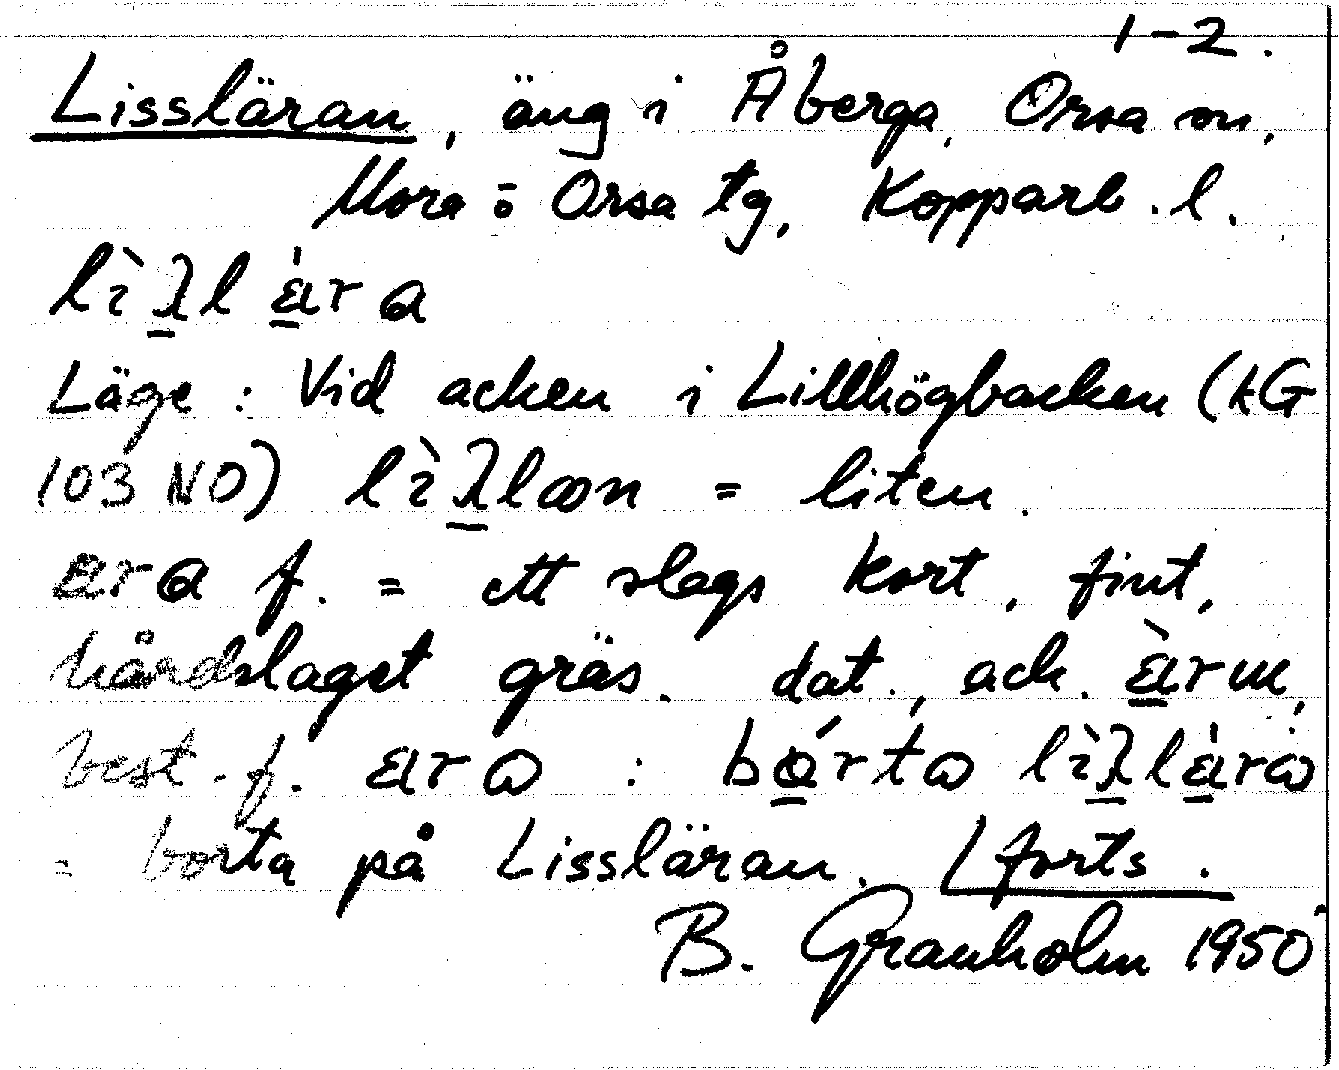 1-2.
Lissläran, äng i Åberga, Orsa sn,
Mora o Orsa tg, Kopparb. l.
Läge: Vid acken i Lillhögbacken (kG
103 NO) = liten.
f. = ett slags kort, fint,
hårdslaget gräs. dat., ack.
best. f. :
= borta på Lissläran. / forts.
B. Granholm 1950